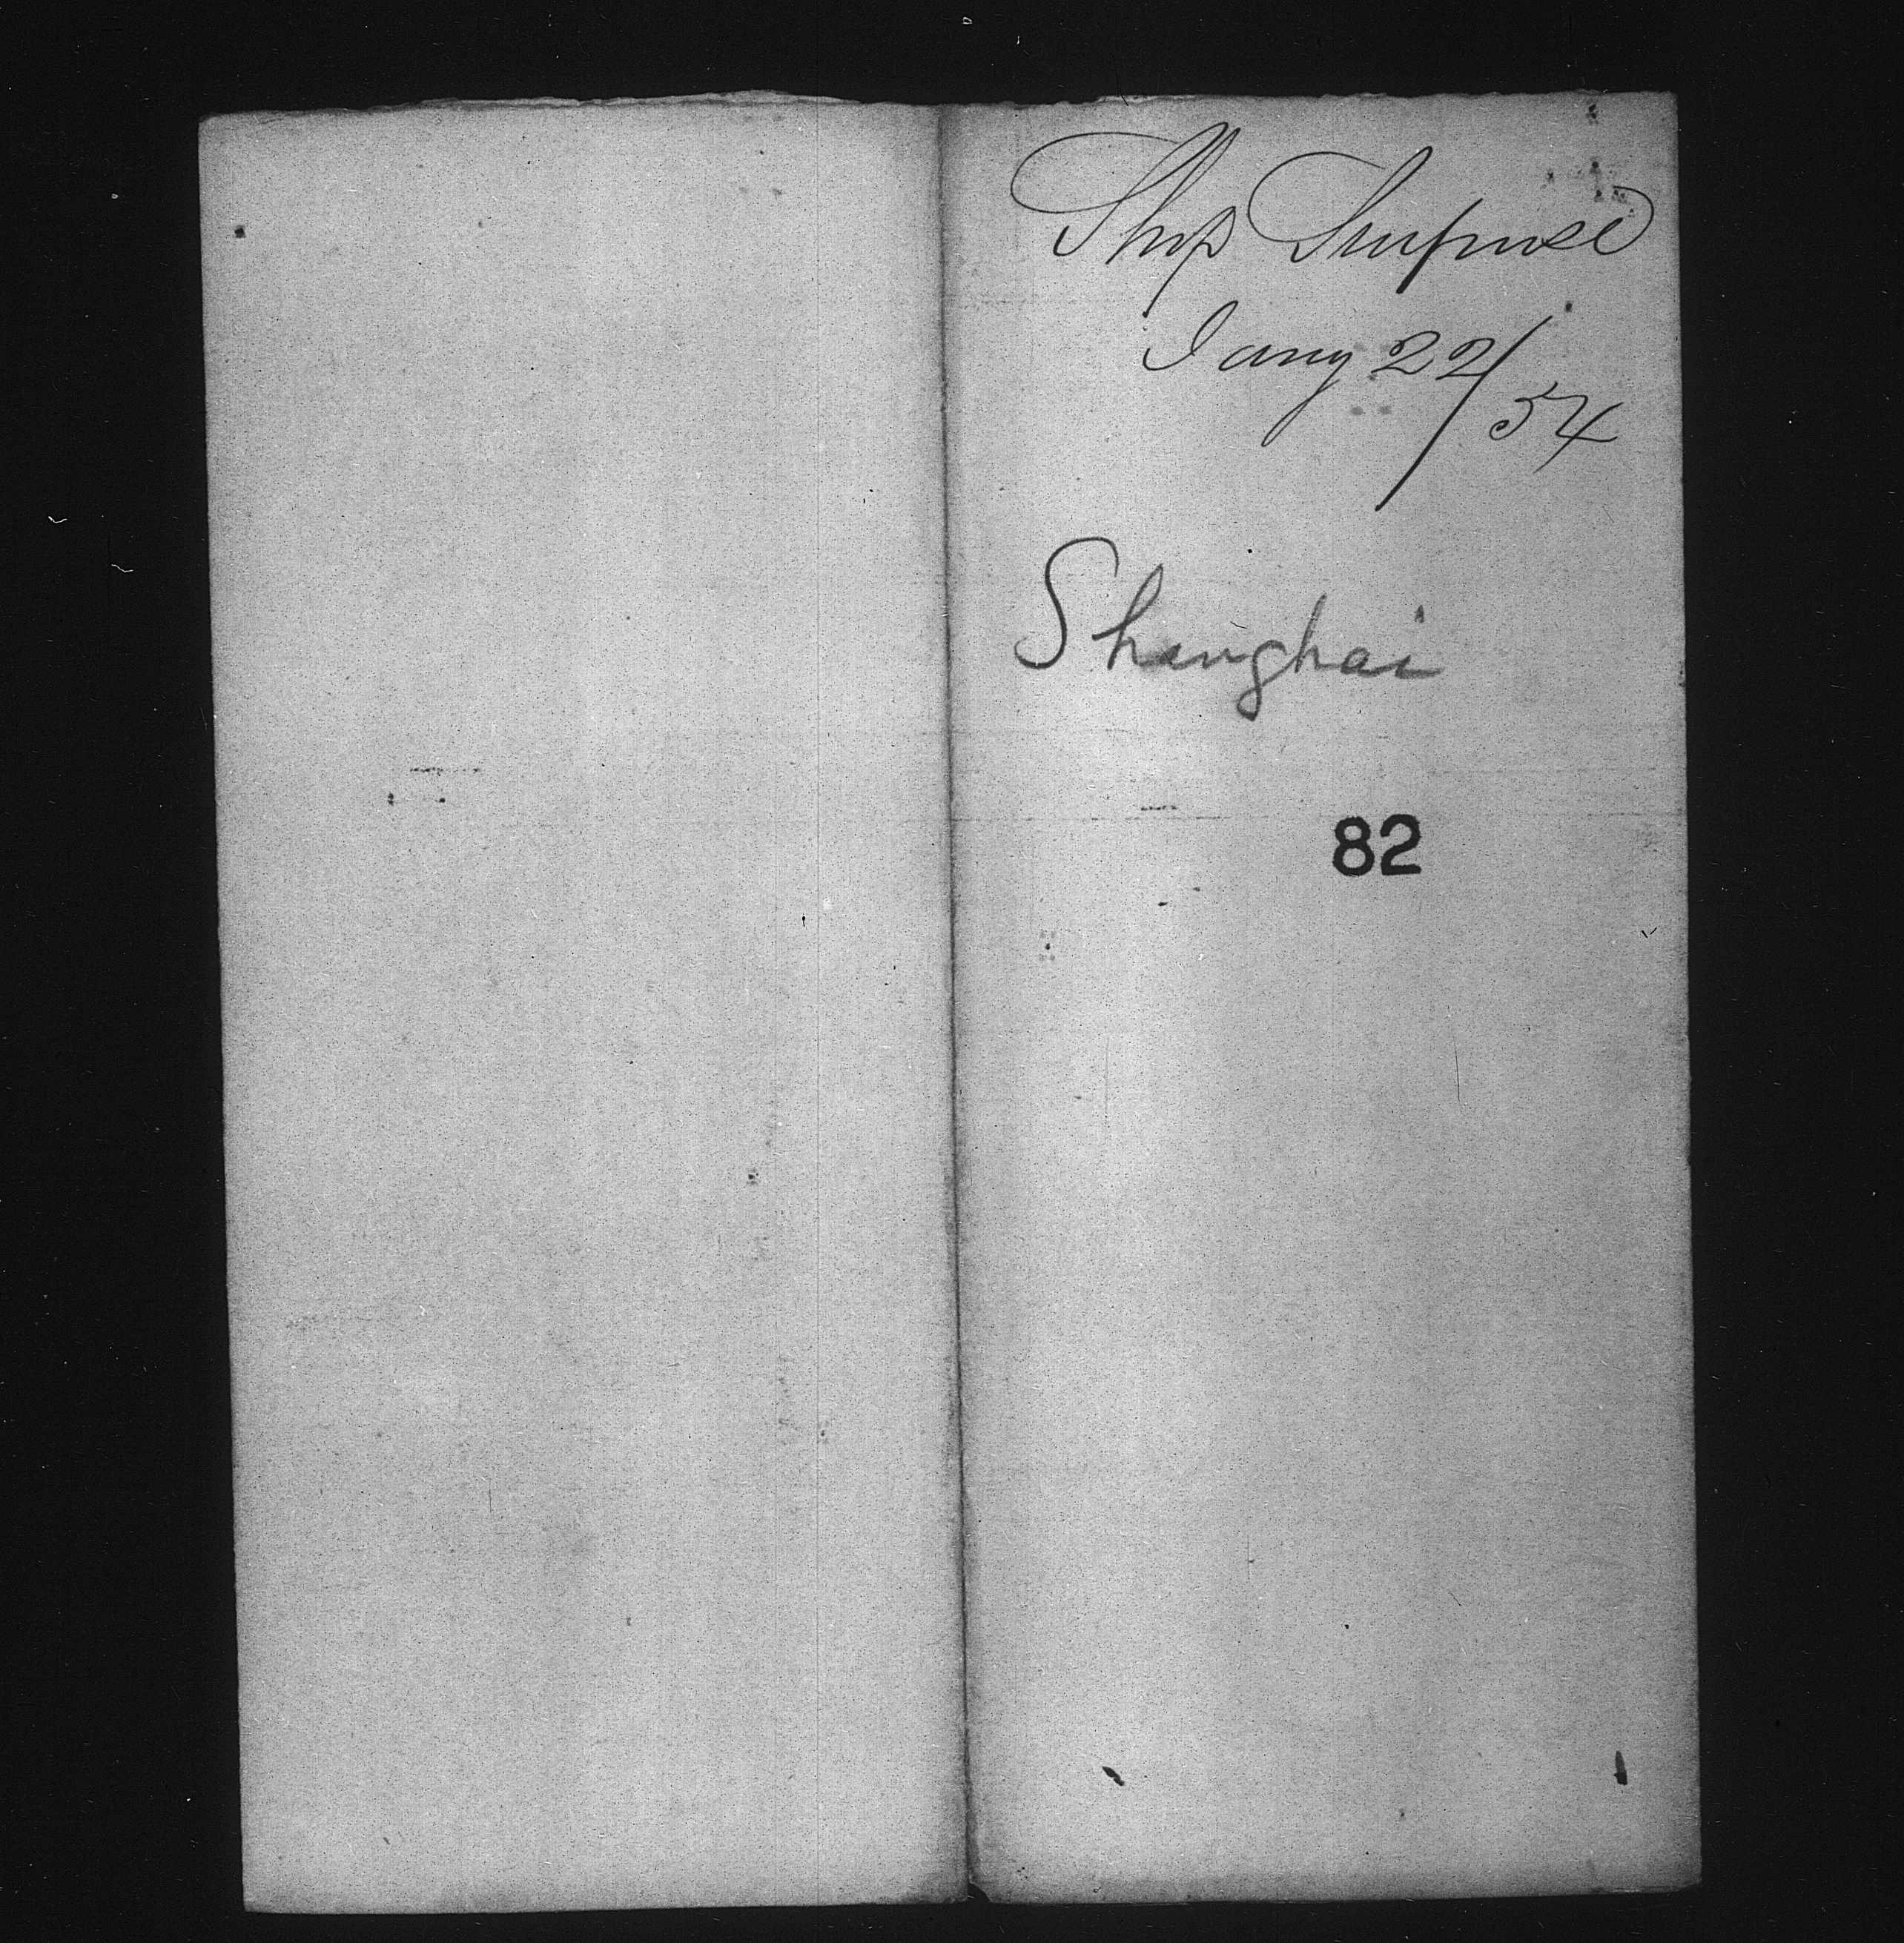 Ship Surprise
Jany 22/54
Shanghai
82